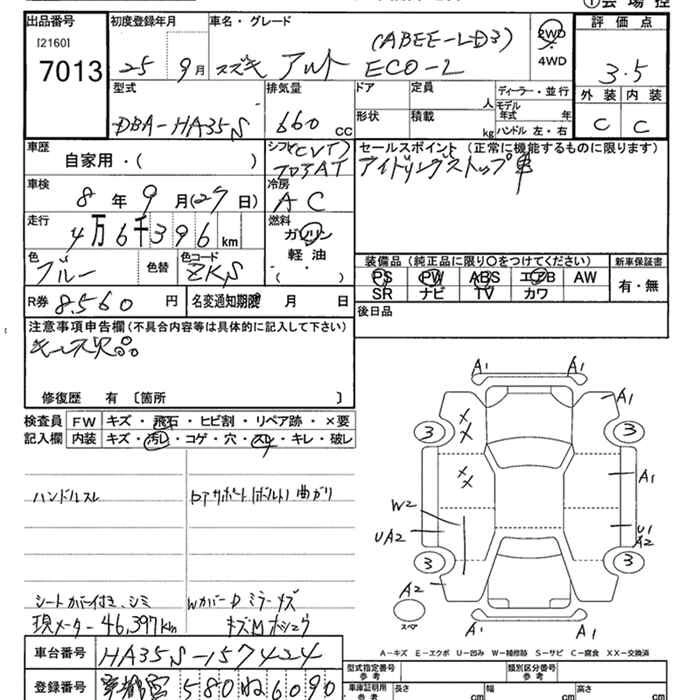 出品番号 初度登録年月 車名・グレード 評価点
[2160]
7013 25年 9月 スズキ アルト (ABEE-LD3) ECO-L
2WD
4WD
3.5
型式 排気量 ドア 定員 人 ディーラー・並行 外装 内装
DBA-HA35S 660 CC 形状 積載 kg モデル年式 年 ハンドル 左・右 C C
車歴 シフト(CVT) セールスポイント(正常に機能するものに限ります)
自家用・( ) フロアAT アイドリングストップ車
車検 冷房
8年 9月(27日) AC
走行 燃料
4万6千396km ガソリン
軽油
( )
色 色替 色コード 装備品(純正品に限り〇をつけてください) 新車保証書
ブルー ZKS PS PW ABS エアB AW 有・無
SR ナビ TV カワ
R券 8.560円 名変通知期限 月 日 後日品
注意事項申告欄(不具合内容等は具体的に記入して下さい)
キーレス欠品
修復歴 有〔箇所 〕
検査員 FW キズ・飛石・ヒビ割・リペア跡・×要
記入欄 内装 キズ・汚レ・コゲ・穴・スレ・キレ・破レ
ハンドルスレ
シートカバー付き、シミ
現メーター 46,397km
A1 A1
A1
3 3
A1
W2
UA2 U1
A2
3 3
A2
スペア
A1 A1
A-キズ E-エクボ U-凹み W-補修跡 S-サビ C-腐食 XX-交換済
車台番号 HA35S-157424
登録番号 580 ね 6090
型式指定番号 参考 類別区分番号 参考
車庫証明用(参考) 長さ cm 幅 cm 高さ cm